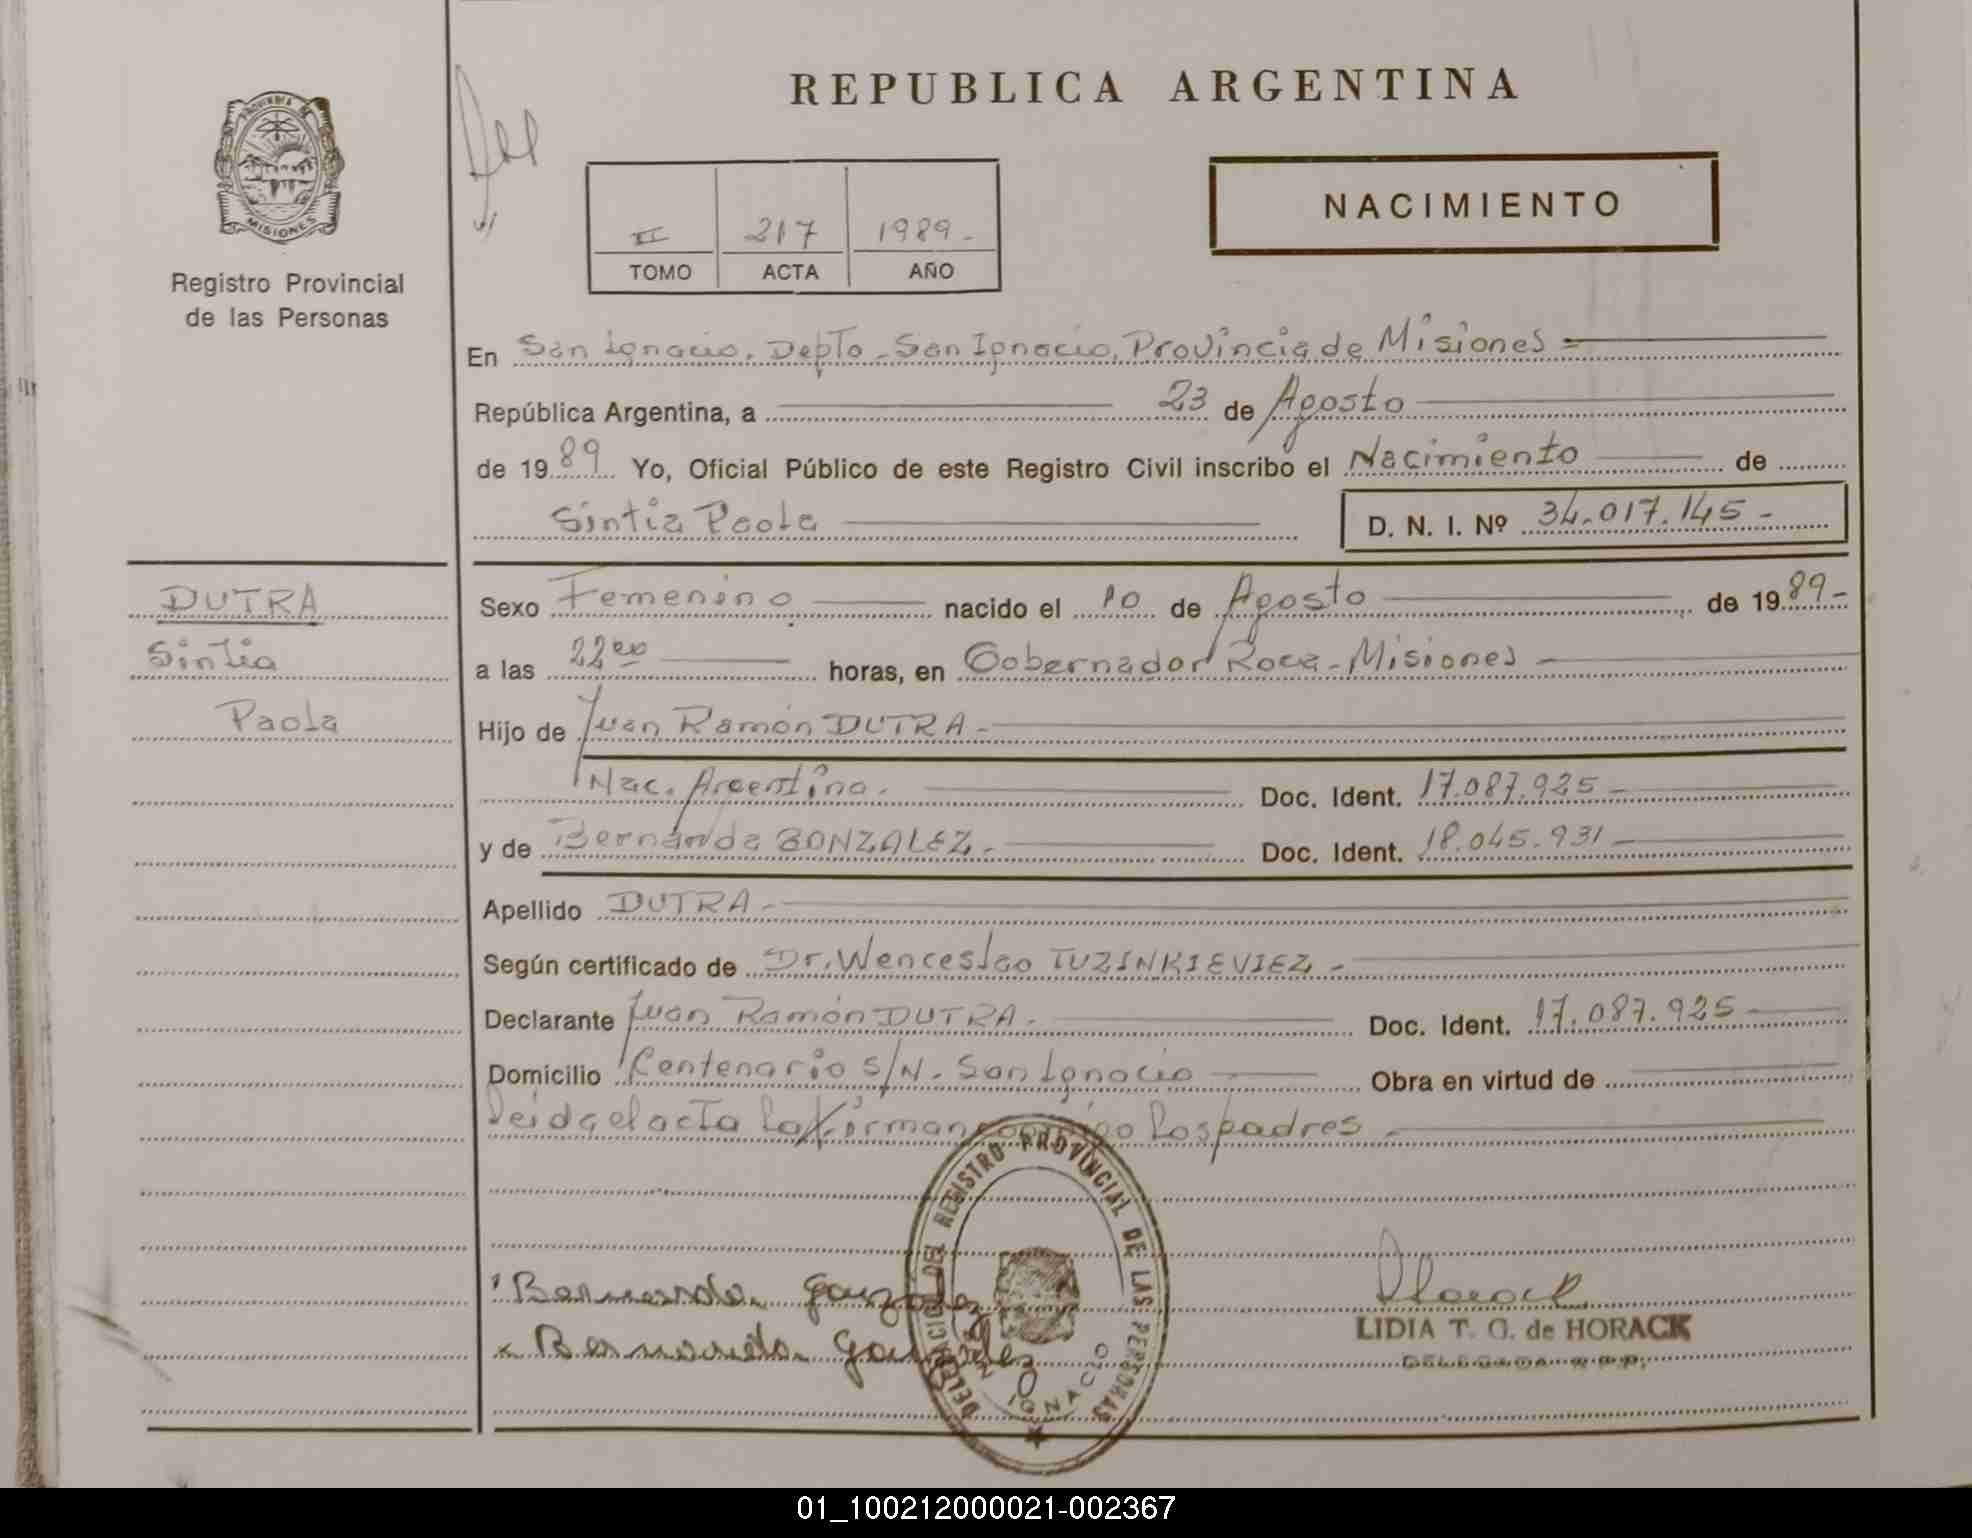 REPUBLICA ARGENTINA
PROVINCIA DE
MISIONES
Registro Provincial
de las Personas
II 217 1989.-
TOMO ACTA AÑO
NACIMIENTO
En San Ignacio, Depto. San Ignacio, Provincia de Misiones
República Argentina, a 23 de Agosto
de 1989 Yo, Oficial Público de este Registro Civil inscribo el Nacimiento de
Sintia Paola D. N. I. Nº 34.017.145-
DUTRA
Sintia
Paola
Sexo Femenino nacido el 10 de Agosto de 1989-
a las 22 horas, en Gobernador Roca - Misiones -
Hijo de Juan Ramón DUTRA -
Nac. Argentina. Doc. Ident. 17.087.925 -
y de Bernarda GONZALEZ. Doc. Ident. 18.045.931 -
Apellido DUTRA -
Según certificado de Dr. Wenceslao TUZINKIEVIEZ -
Declarante Juan Ramón DUTRA - Doc. Ident. 17.087.925
Domicilio Centenario S/N. San Ignacio Obra en virtud de
Leida el acta la firman conmigo los padres -
Bernarda Gonzalez
Bernarda Gonzalez
DELEGACION DEL REGISTRO PROVINCIAL DE LAS PERSONAS
SAN IGNACIO
Horack
LIDIA T. G. de HORACK
DELEGADA R.P.P.
01_100212000021-002367